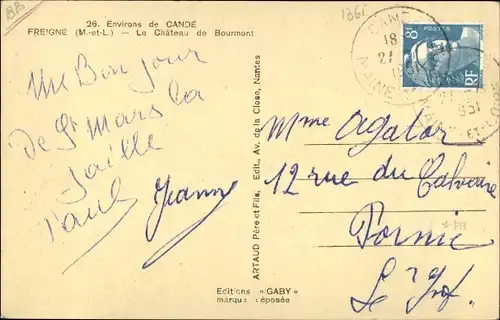 BB
1366
26. Environs de CANDÉ
FREIGNÉ (M.-et-L.) — Le Château de Bourmont
Un Bon jour
De St Mars la
Jaille
Paul Jeanne
ARTAUD Père et Fils, Edit., Av. de la Close, Nantes
Editions "GABY"
marque déposée
POSTES
RF
18
Mme Agator
12 rue du Calvaire
Pornic
L. Inf.